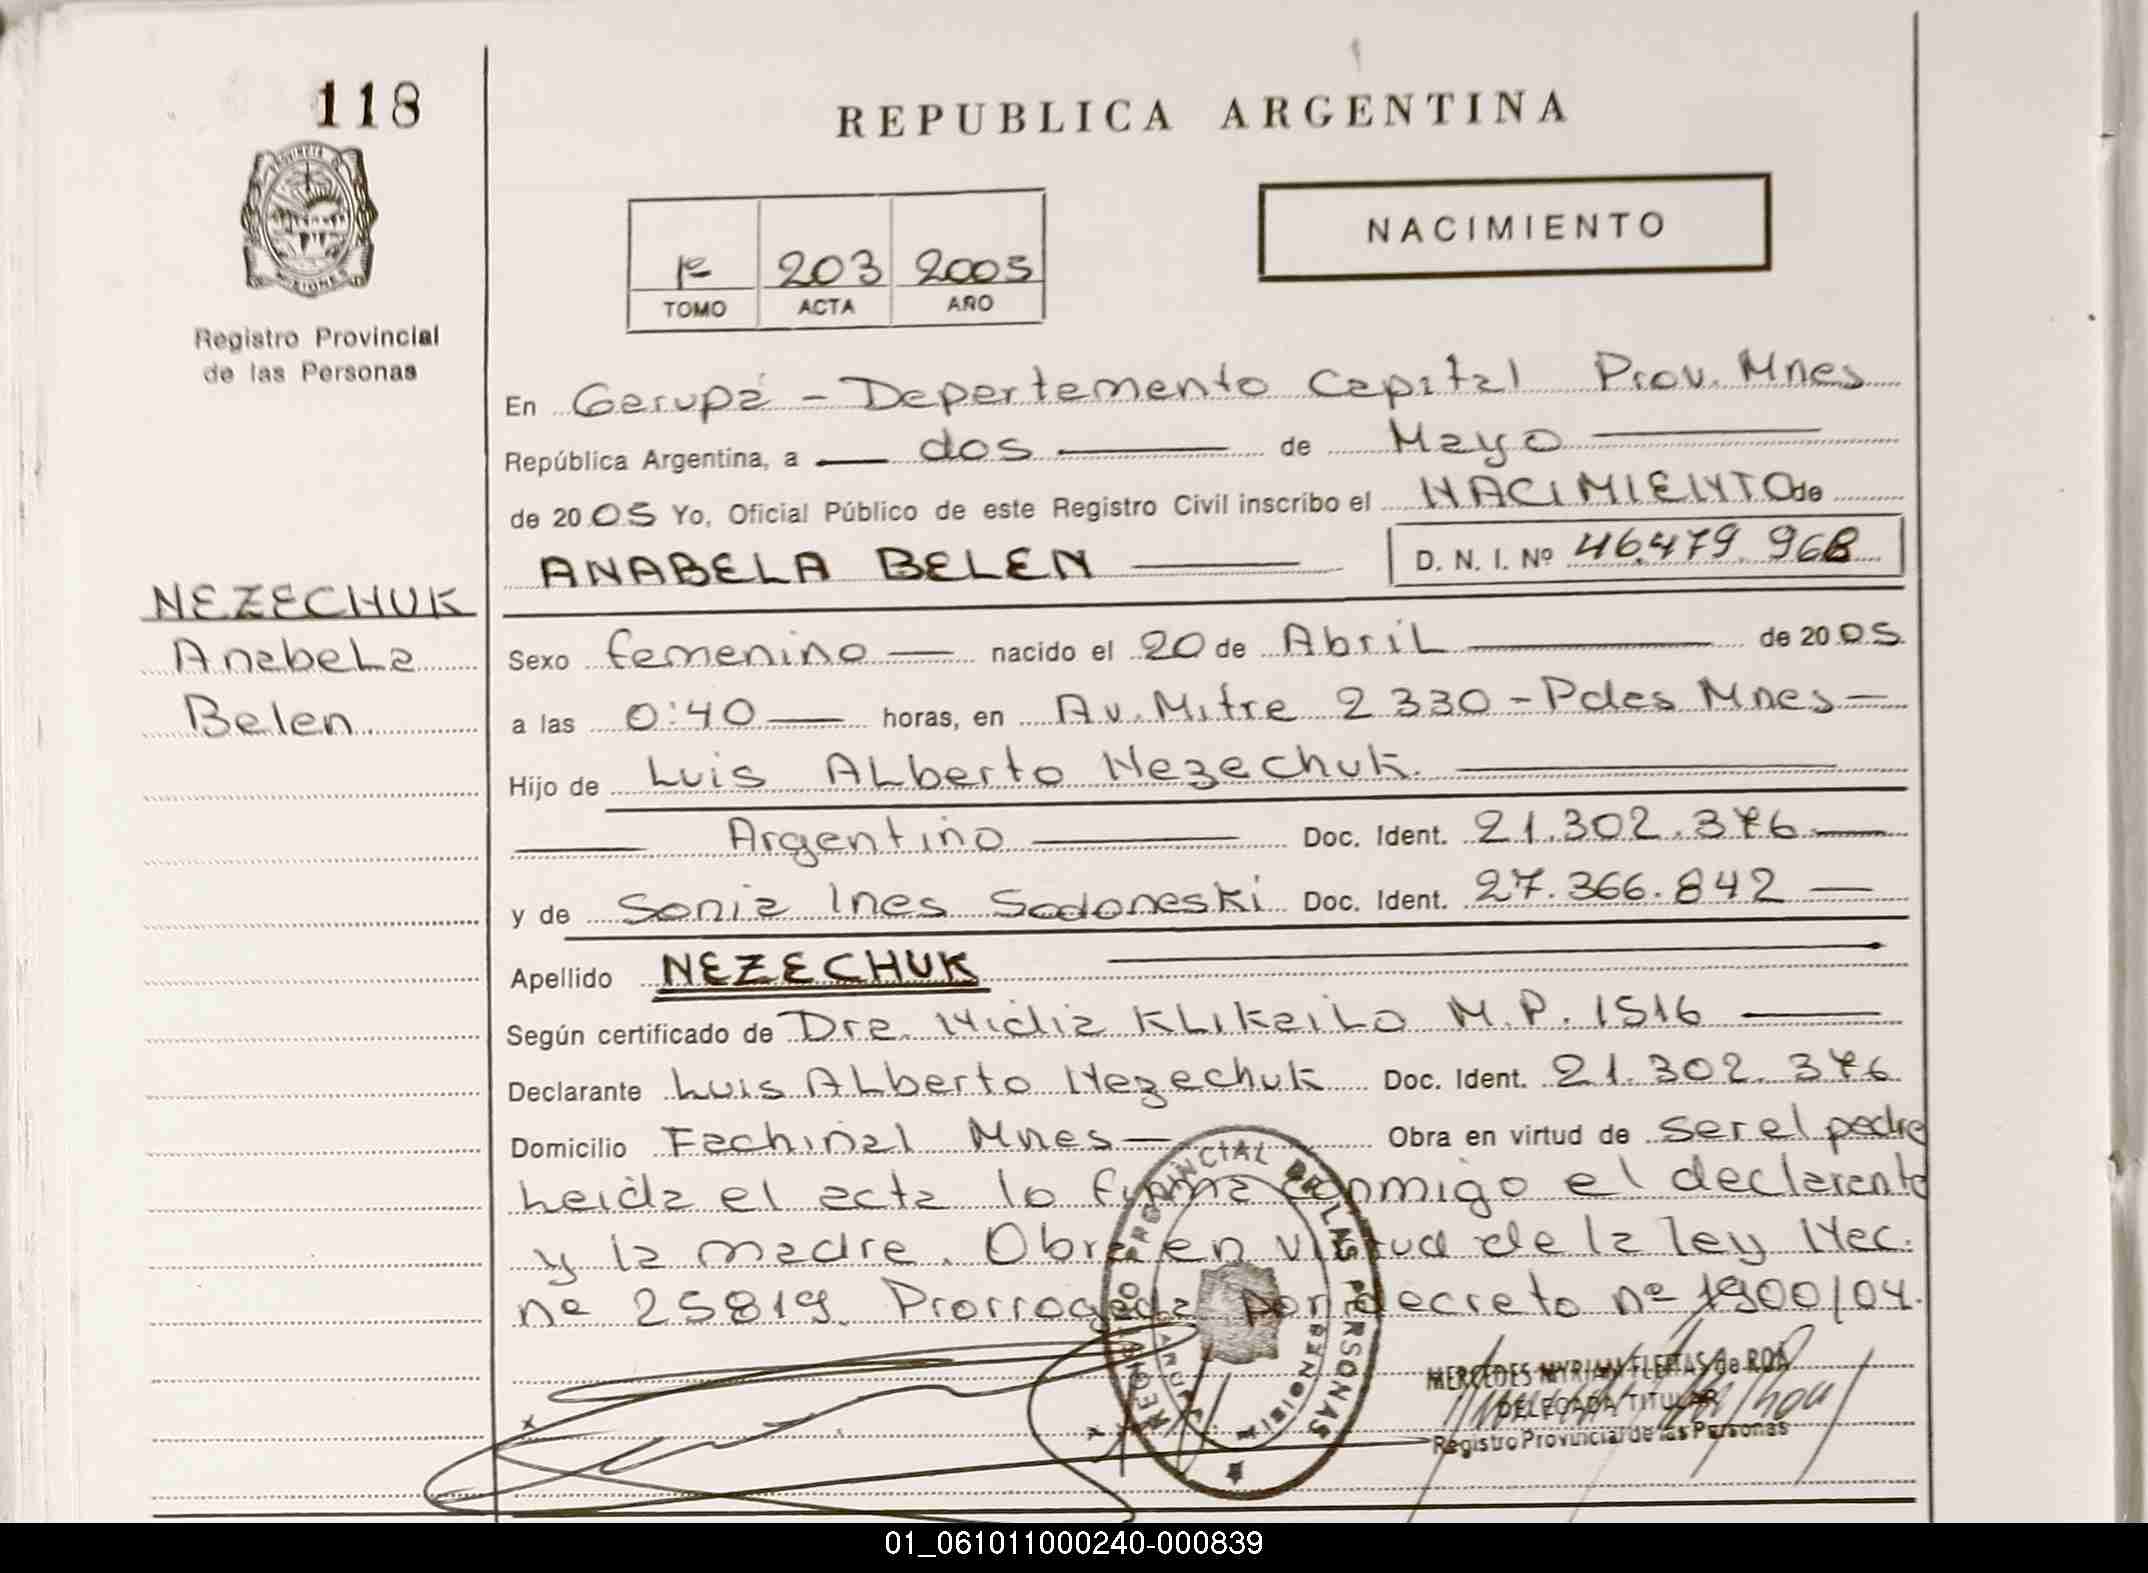 118
REPUBLICA ARGENTINA
NACIMIENTO
1º 203 2005
TOMO ACTA AÑO
Registro Provincial
de las Personas
En Garupá - Departamento Capital Prov. Mnes
República Argentina, a dos de Mayo
de 2005 Yo, Oficial Público de este Registro Civil inscribo el NACIMIENTO de
ANABELA BELEN D. N. I. Nº 46.479.968
NEZECHUK
Anabela
Belen
Sexo femenino nacido el 20 de Abril de 2005
a las 0:40 horas, en Av. Mitre 2330 - Pdas Mnes
Hijo de Luis Alberto Nezechuk.
Argentino Doc. Ident. 21.302.376
y de Sonia Ines Sadoneski Doc. Ident. 27.366.842
Apellido NEZECHUK
Según certificado de Dra. Nidia Klikailo M.P. 1516
Declarante Luis Alberto Nezechuk Doc. Ident. 21.302.376
Domicilio Fachinal Mnes Obra en virtud de ser el padre
Leida el acta lo firma conmigo el declarante
y la madre. Obra en virtud de la ley Nac.
nº 25819. Prorrogada por decreto nº 1900/04.
REGISTRO PROVINCIAL DE LAS PERSONAS
GARUPA
MISIONES
MERCEDES MYRIAN FLEITAS de ROA
DELEGADA TITULAR
Registro Provincial de las Personas
01_061011000240-000839